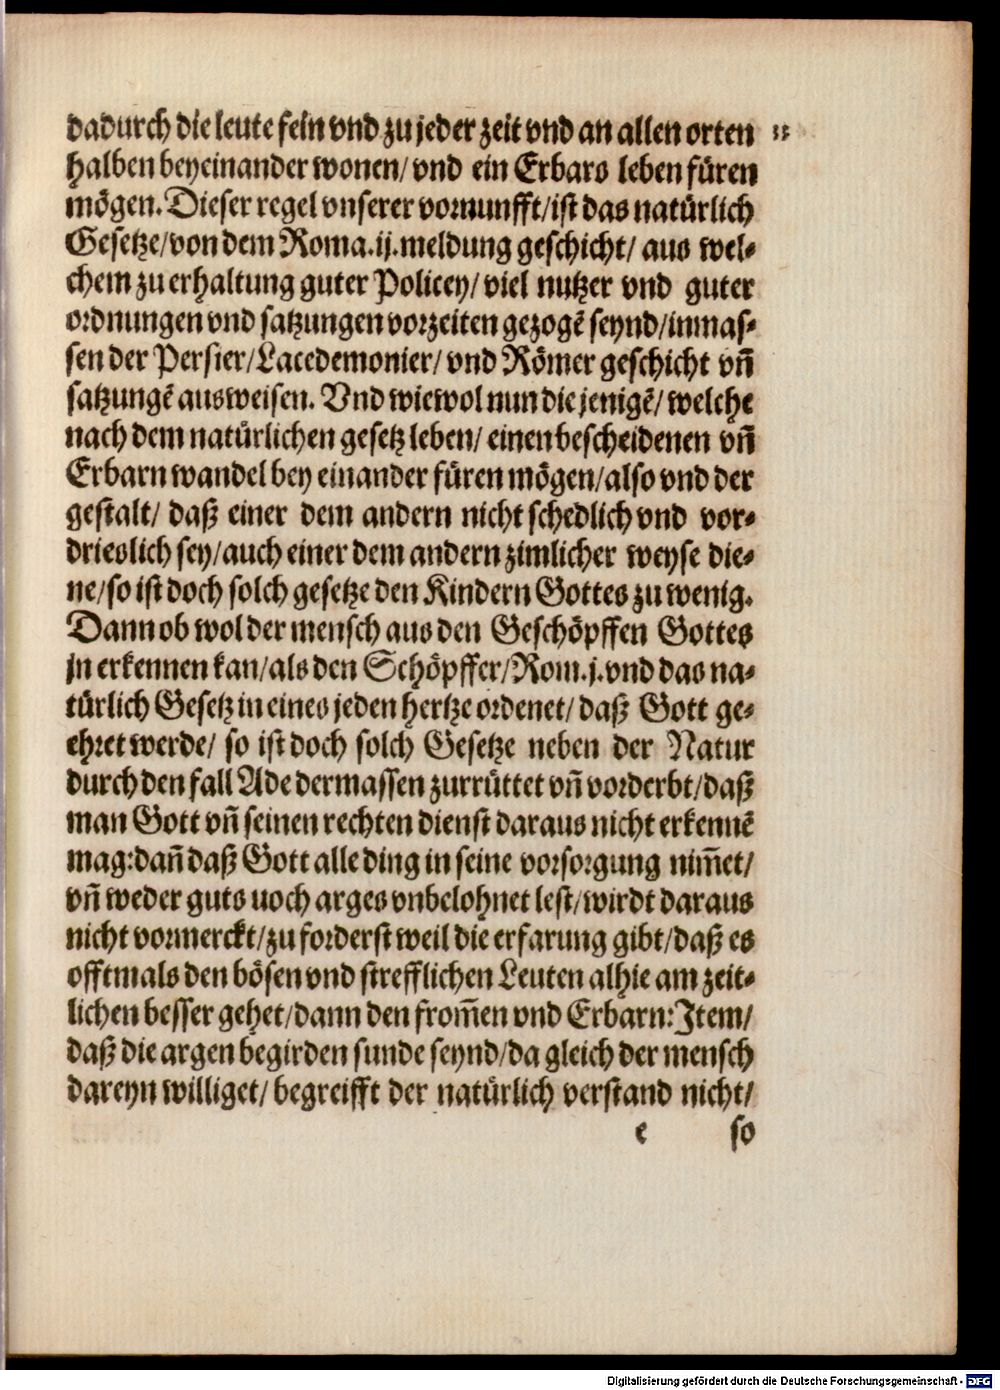 dadurch die leute fein vnd zu jeder zeit vnd an allen orten
halben beyeinander wonen/ vnd ein Erbars leben füren
mögen. Dieser regel vnserer vornunfft/ ist das natürlich
Gesetze/ von dem Roma. ij. meldung geschicht/ aus wel⸗
chem zu erhaltung guter Policey/ viel nutzer vnd guter
ordnungen vnd satzungen vorzeiten gezogẽ seynd/ inmas⸗
sen der Persier/ Lacedemonier/ vnd Römer geschicht vñ
satzungẽ ausweisen. Vnd wiewol nun die jenigẽ/ welche
nach dem natürlichen gesetz leben/ einen bescheidenen vñ
Erbarn wandel bey einander füren mögen/ also vnd der
gestalt/ daß einer dem andern nicht schedlich vnd vor⸗
drieslich sey/ auch einer dem andern zimlicher weyse die⸗
ne/ so ist doch solch gesetze den Kindern Gottes zu wenig.
Dann ob wol der mensch aus den Geschöpffen Gottes
jn erkennen kan/ als den Schöpffer/ Rom. j. vnd das na⸗
türlich Gesetz in eines jeden hertze ordenet/ daß Gott ge⸗
ehret werde/ so ist doch solch Gesetze neben der Natur
durch den fall Ade dermassen zurrüttet vñ vorderbt/ daß
man Gott vñ seinen rechten dienst daraus nicht erkennẽ
mag: dañ daß Gott alle ding in seine vorsorgung nim̃et/
vñ weder guts uoch arges vnbelohnet lest/ wirdt daraus
nicht vormerckt/ zu forderst weil die erfarung gibt/ daß es
offtmals den bösen vnd strefflichen Leuten alhie am zeit⸗
lichen besser gehet/ dann den from̃en vnd Erbarn: Item/
daß die argen begirden sunde seynd/ da gleich der mensch
dareyn williget/ begreifft der natürlich verstand nicht/
e so
Digitalisierung gefördert durch die Deutsche Forschungsgemeinschaft - DFG